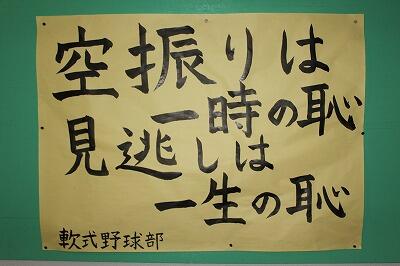 空振りは
一時の恥
見逃しは
一生の恥
軟式野球部